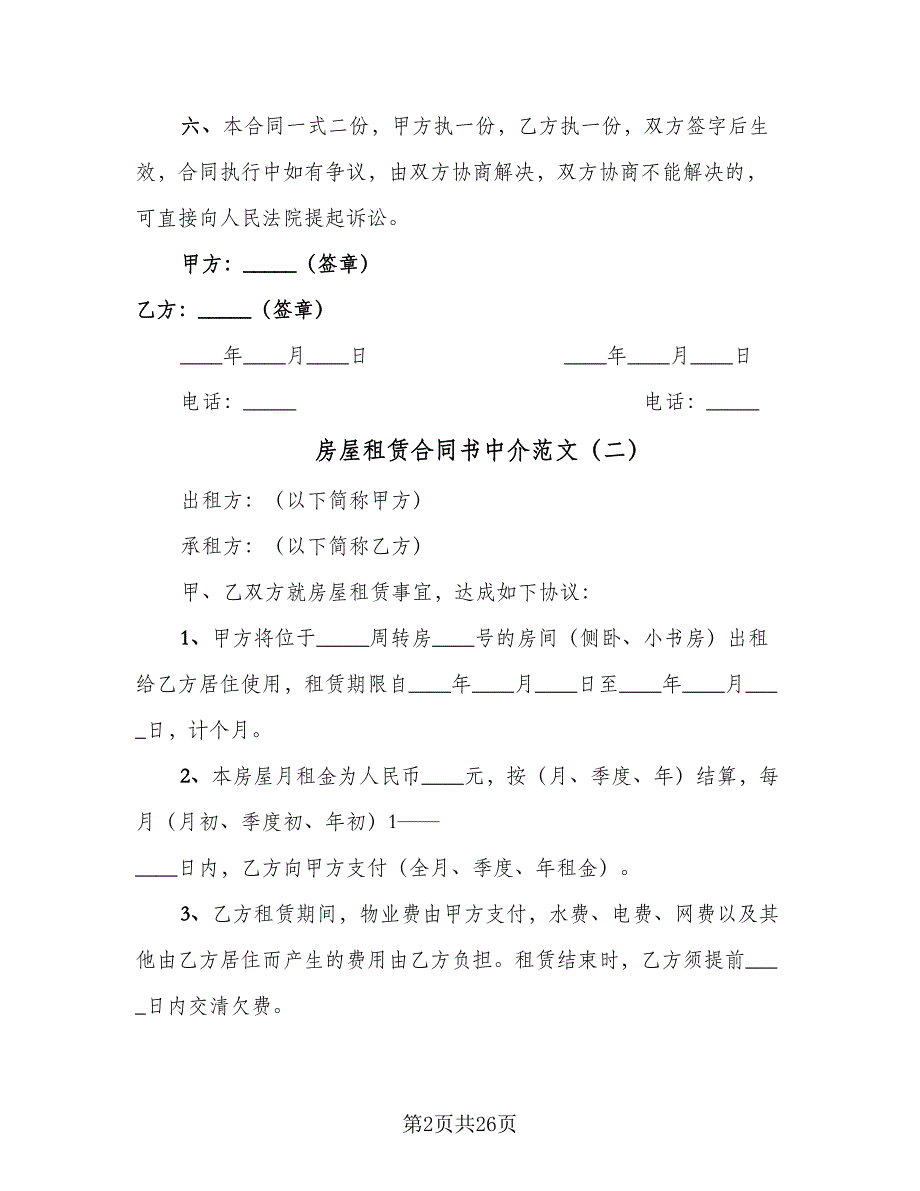 六、本合同一式二份，甲方执一份，乙方执一份，双方签字后生
效，合同执行中如有争议，由双方协商解决，双方协商不能解决的，
可直接向人民法院提起诉讼。
甲方：_____（签章）
乙方：_____（签章）
____年____月____日 ____年____月____日
电话：_____ 电话：_____
房屋租赁合同书中介范文（二）
出租方：（以下简称甲方）
承租方：（以下简称乙方）
甲、乙双方就房屋租赁事宜，达成如下协议：
1、甲方将位于_____周转房____号的房间（侧卧、小书房）出租
给乙方居住使用，租赁期限自____年____月____日至____年____月___
_日，计个月。
2、本房屋月租金为人民币____元，按（月、季度、年）结算，每
月（月初、季度初、年初）1——
____日内，乙方向甲方支付（全月、季度、年租金）。
3、乙方租赁期间，物业费由甲方支付，水费、电费、网费以及其
他由乙方居住而产生的费用由乙方负担。租赁结束时，乙方须提前___
_日内交清欠费。
第2页共26页